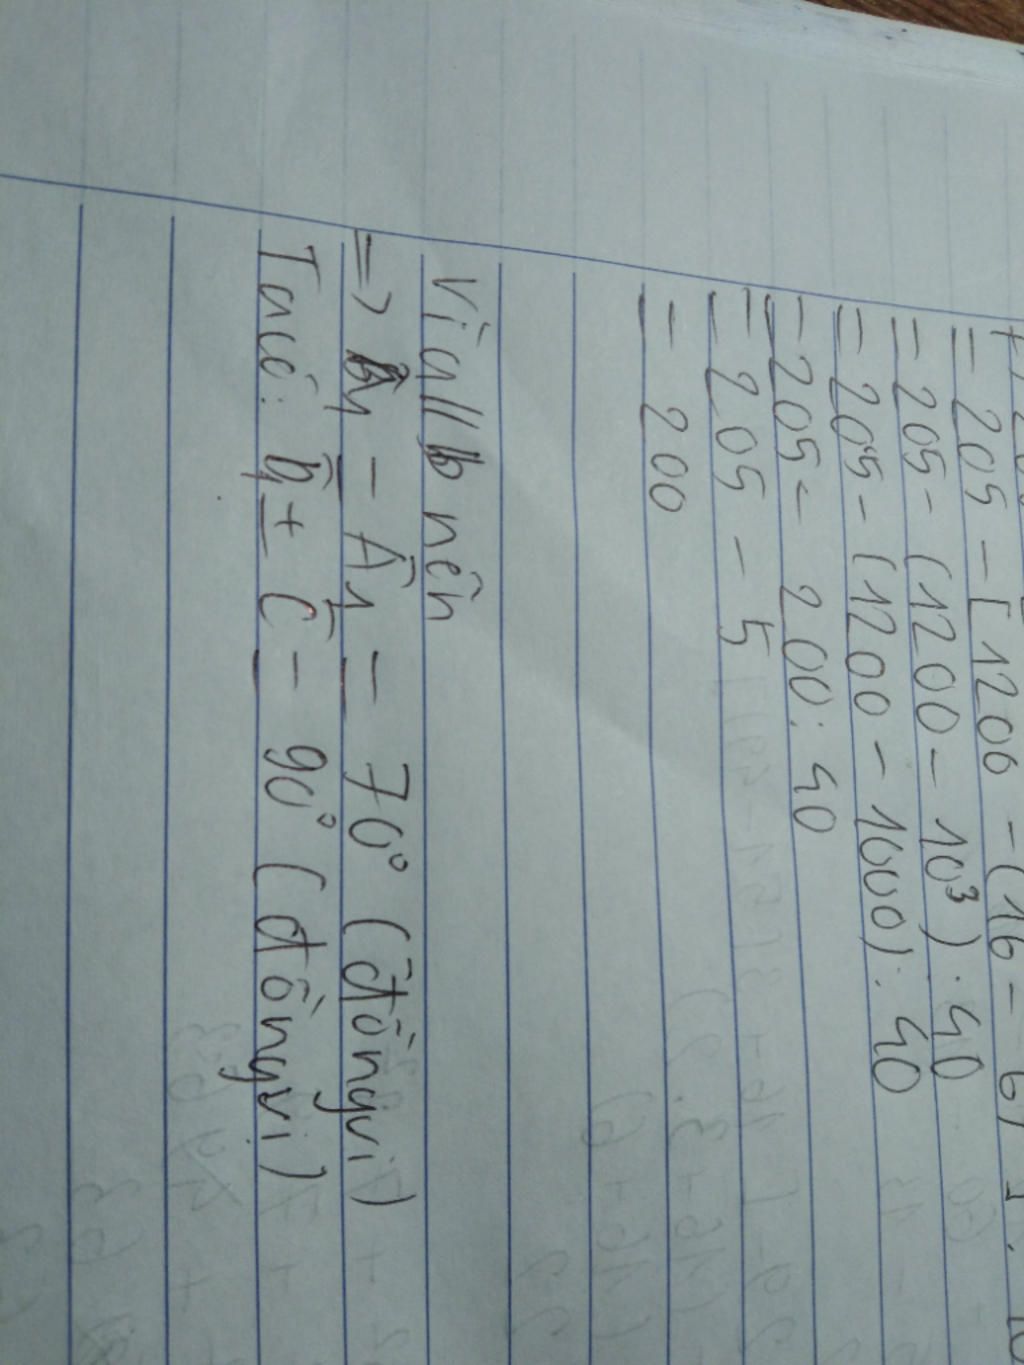 = 205 - [1200 - (16 - 6)
= 205 - (1200 - 10³) : 40
= 205 - (1200 - 1000) : 40
= 205 - 200 : 40
= 205 - 5
= 200
Vì a // b nên
=> B̂₁ = Â₁ = 70° (đồng vị)
Ta có: B̂₁ + Ĉ = 90° (đồng vị)